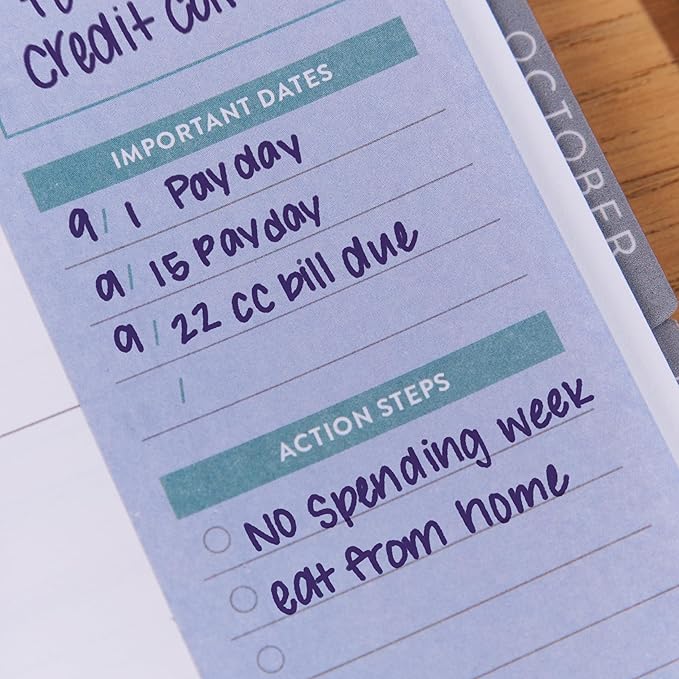 credit
IMPORTANT DATES
9/1 Payday
9/15 Payday
9/22 cc bill due
/
ACTION STEPS
NO spending week
eat from home
OCTOBER